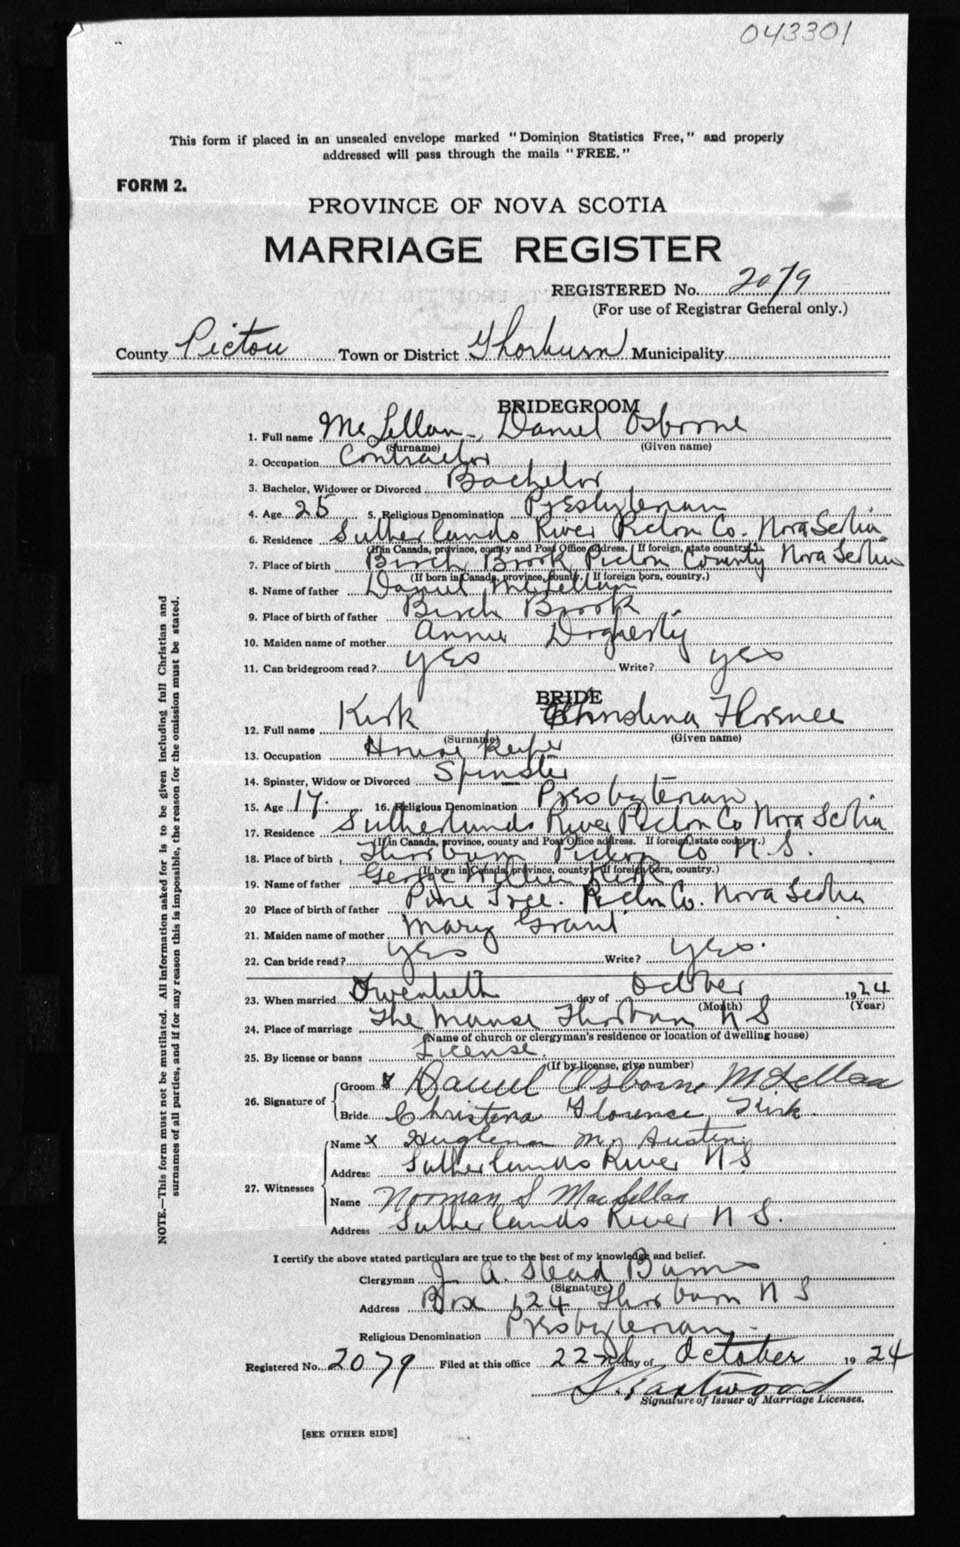 043301
This form if placed in an unsealed envelope marked "Dominion Statistics Free," and properly
addressed will pass through the mails "FREE."
FORM 2.
PROVINCE OF NOVA SCOTIA
MARRIAGE REGISTER
REGISTERED No. 2079
(For use of Registrar General only.)
County Pictou Town or District Thorburn Municipality
BRIDEGROOM
1. Full name McLellan, Daniel Osborne
(Surname) (Given name)
2. Occupation Contractor
3. Bachelor, Widower or Divorced Bachelor
4. Age 25 5. Religious Denomination Presbyterian
6. Residence Sutherlands River Pictou Co. Nova Scotia
(If in Canada, province, county and Post Office address. If foreign, state country.)
7. Place of birth Birch Brook Pictou County Nova Scotia
(If born in Canada, province, county. If foreign born, country.)
8. Name of father Daniel McLellan
9. Place of birth of father Birch Brook
10. Maiden name of mother Annie Dogherty
11. Can bridegroom read? yes Write? yes
BRIDE
12. Full name Kirk Christina Florence
(Surname) (Given name)
13. Occupation House Keeper
14. Spinster, Widow or Divorced Spinster
15. Age 17. 16. Religious Denomination Presbyterian
17. Residence Sutherlands River Pictou Co Nova Scotia
(If in Canada, province, county and Post Office address. If foreign, state country.)
18. Place of birth Thorburn Pictou Co N.S.
(If born in Canada, province, county. If foreign born, country.)
19. Name of father George William Kirk
20 Place of birth of father Pine Tree. Pictou Co. Nova Scotia
21. Maiden name of mother Mary Grant
22. Can bride read? yes Write? yes.
23. When married Twentieth day of October 1924
(Month) (Year)
24. Place of marriage The Manse Thorburn N S
(Name of church or clergyman's residence or location of dwelling house)
25. By license or banns License.
(If by license, give number)
26. Signature of Groom Daniel Osborne McLellan
Bride Christena Florence Kirk.
27. Witnesses Name x M. Austin
Address Sutherlands River N S
Name Norman S MacLellan
Address Sutherlands River N S.
I certify the above stated particulars are true to the best of my knowledge and belief.
Clergyman J. A. Stead Burns
(Signature)
Address Box 124 Thorburn N S
Religious Denomination Presbyterian
Registered No. 2079 Filed at this office 22nd day of October 1924
Eastwood
Signature of Issuer of Marriage Licenses.
[SEE OTHER SIDE]
NOTE.—This form must not be mutilated. All information asked for is to be given including full Christian and
surnames of all parties, and if for any reason this is impossible, the reason for the omission must be stated.